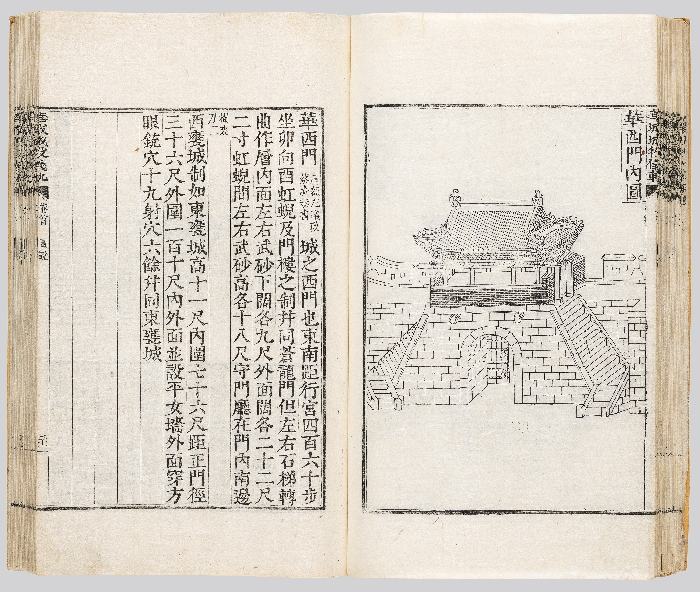 華西門內圖
華西門
城之西門也東南距行宮四百六十步
坐卯向酉虹蜺及門樓之制幷同蒼龍門但左右石梯轉
曲作層內面左右武砂下闊各九尺外面闊各二十二尺
二寸虹蜺間左右武砂高各十八尺守門廳在門內南邊
西甕城制如東甕城高十一尺內圍七十六尺距正門徑
三十六尺外圍一百十尺內外面並設平女墻外面穿方
眼銃穴十九射穴六餘幷同東甕城
華城城役儀軌 卷首 圖說